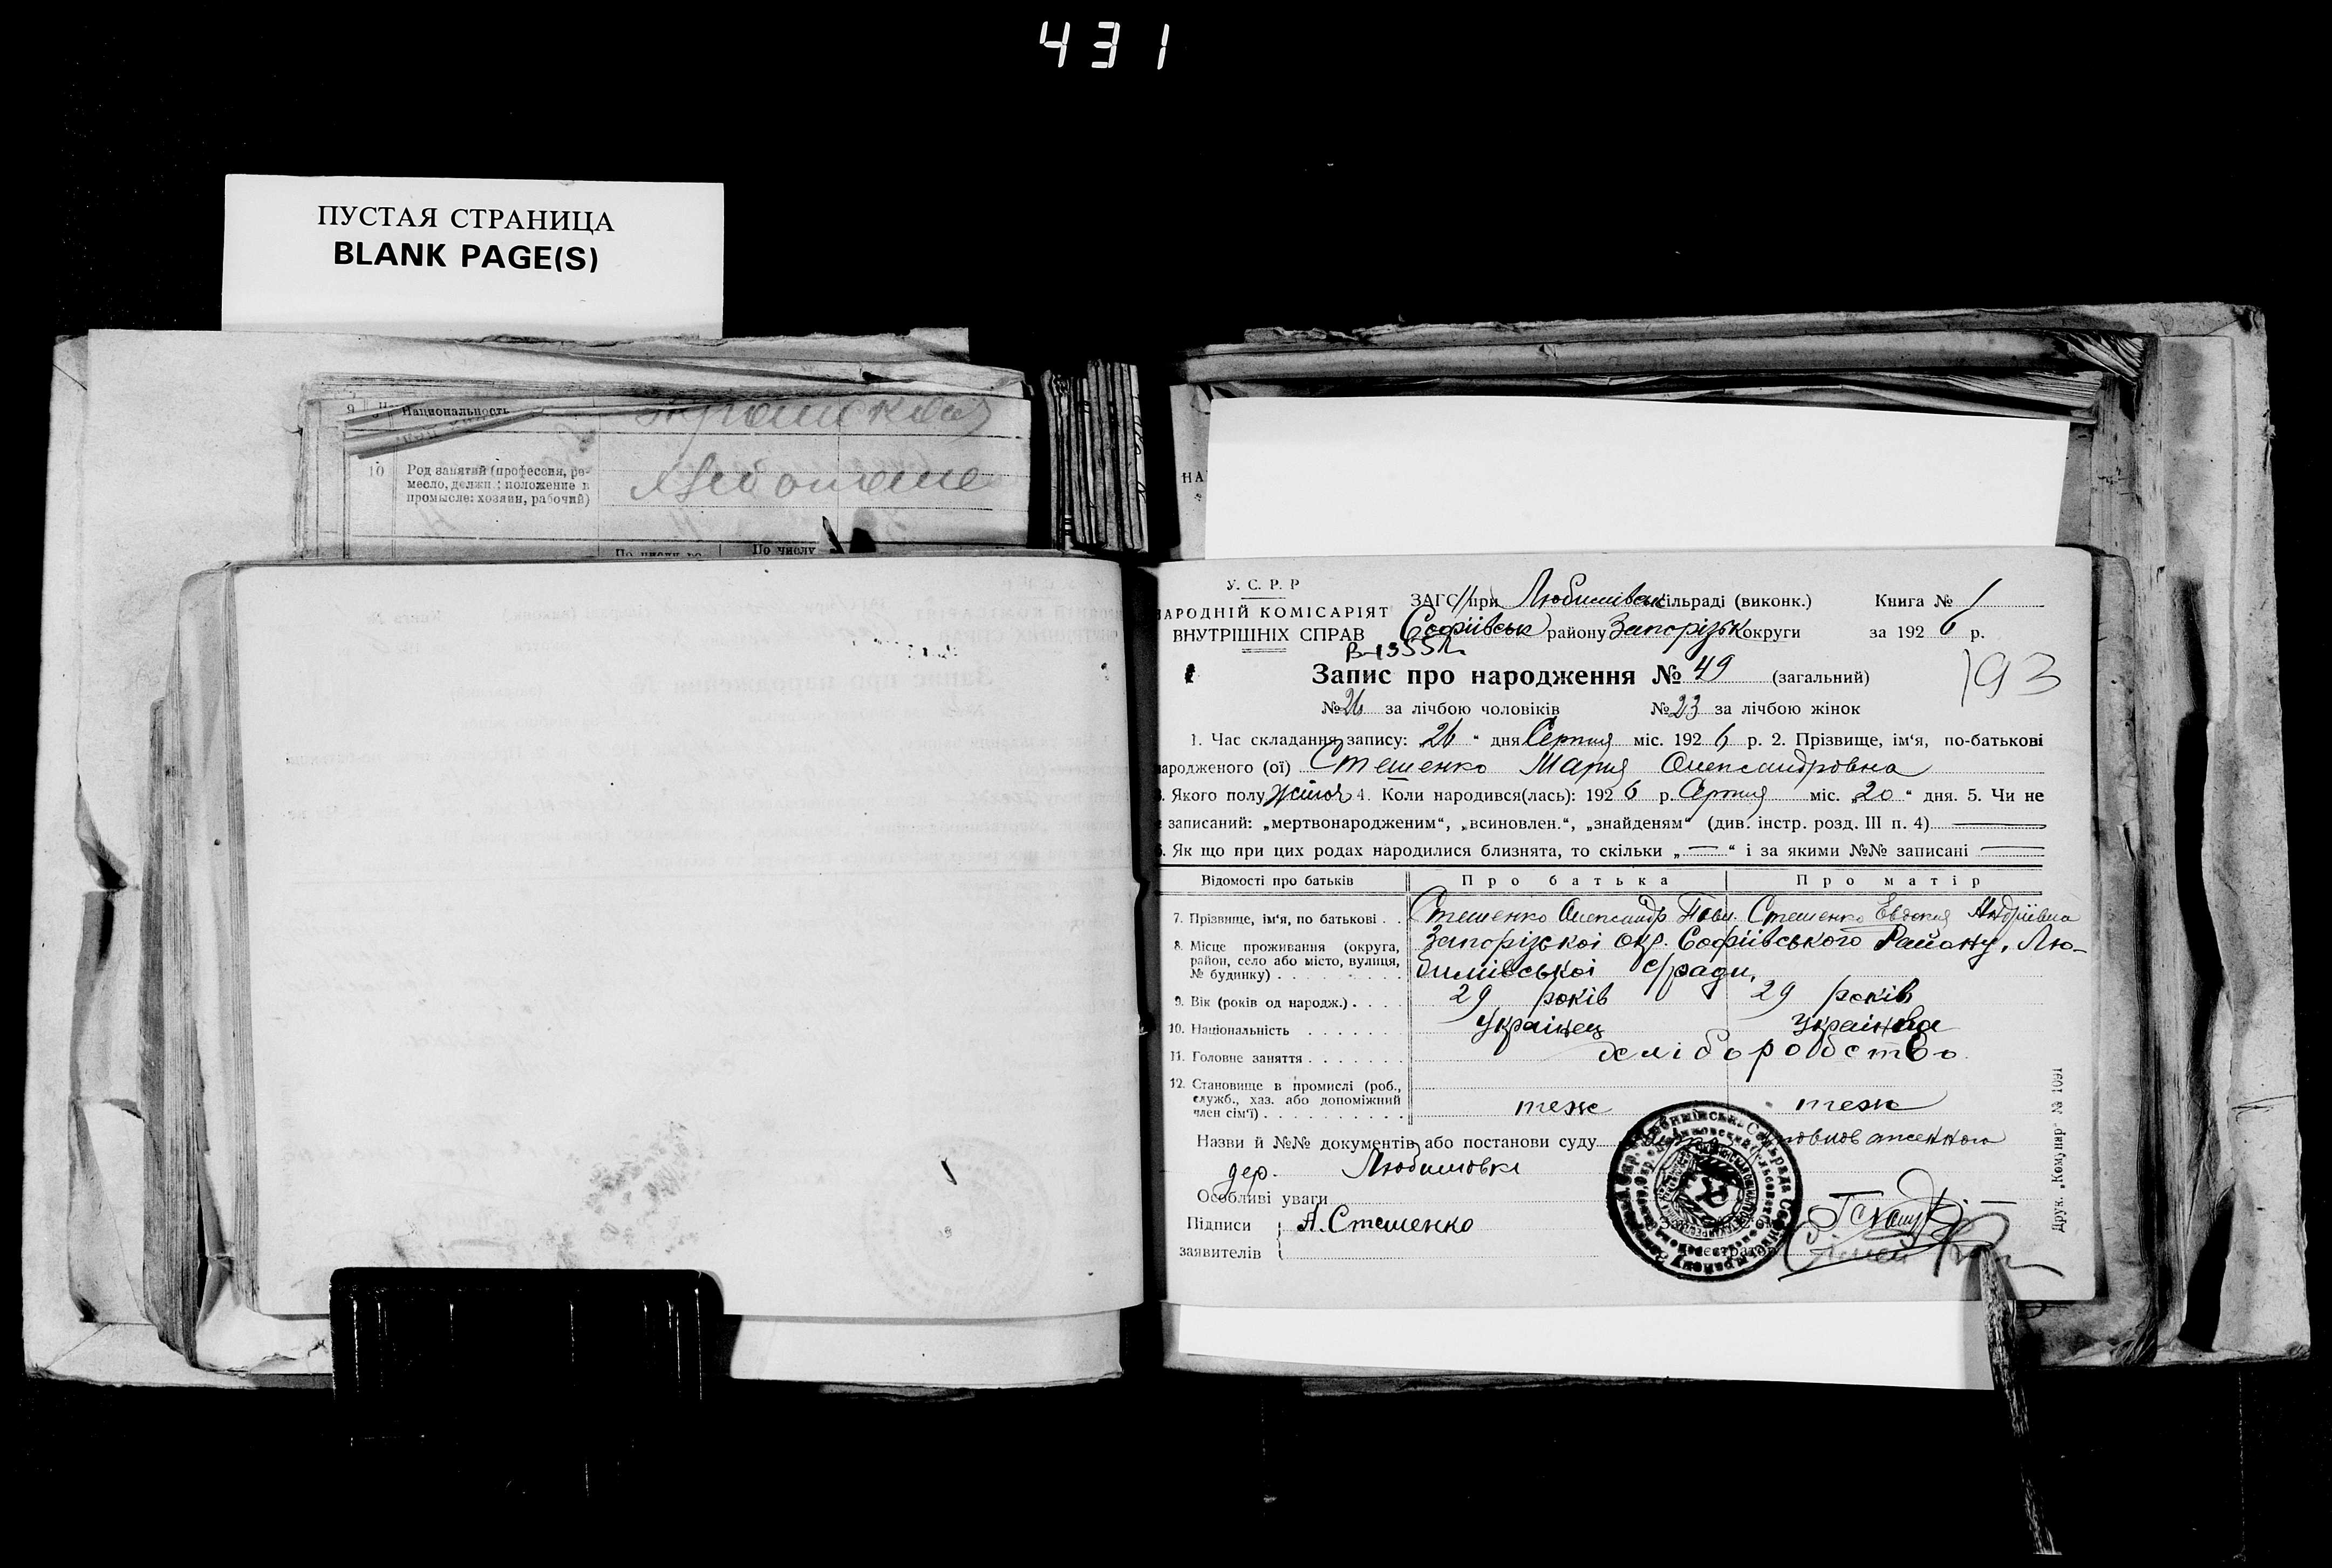 431
ПУСТАЯ СТРАНИЦА
BLANK PAGE(S)
9 Национальность
10 Род занятий (профессия, ре-
месло, должн.: положение в
промысле: хозяин, рабочий)
По числу
НА
У. С. Р. Р
АРОДНІЙ КОМІСАРІЯТ
ВНУТРІШНІХ СПРАВ
ЗАГС при Любимівськ сільраді (виконк.) Книга № 1
Софіївськ району Запорізьк округи за 1926 р.
Запис про народження № 49 (загальний)
193
№ 26 за лічбою чоловіків № 23 за лічбою жінок
1. Час складання запису: „26“ дня Серпня міс. 1926 р. 2. Прізвище, ім'я, по-батькові
народженого (ої) Стешенко Мария Олександровна
3. Якого полу жіноч 4. Коли народився(лась): 1926 р. Серпня міс. „20“ дня. 5. Чи не
є записаний: „мертвонародженим“, „всиновлен.“, „знайденям“ (див. інстр. розд. III п. 4) —
6. Як що при цих родах народилися близнята, то скільки „—“ і за якими №№ записані —
Відомості про батьків Про батька Про матір
7. Прізвище, ім'я, по батькові . . Стешенко Олександр Павл. Стешенко Евдокия Андріівна
8. Місце проживання (округа,
район, село або місто, вулиця,
№ будинку) . . . . Запорізькоі окр. Софіівського Району, Лю-
бимівськоі с/ради,
9. Вік (років од народж.) . . . . 29 років 29 років
10. Національність . . . . . . Украінец Украінка
11. Головне заняття . . . . . . . хліборобство
12. Становище в промислі (роб.,
служб., хаз. або допоміжний
член сім'ї) . . . . . . . . . . теж теж
Назви й №№ документів або постанови суду
дер. Любимовки
Особливі уваги
Підписи А. Стешенко
заявителів
Друк. „Комунар“ № 1091